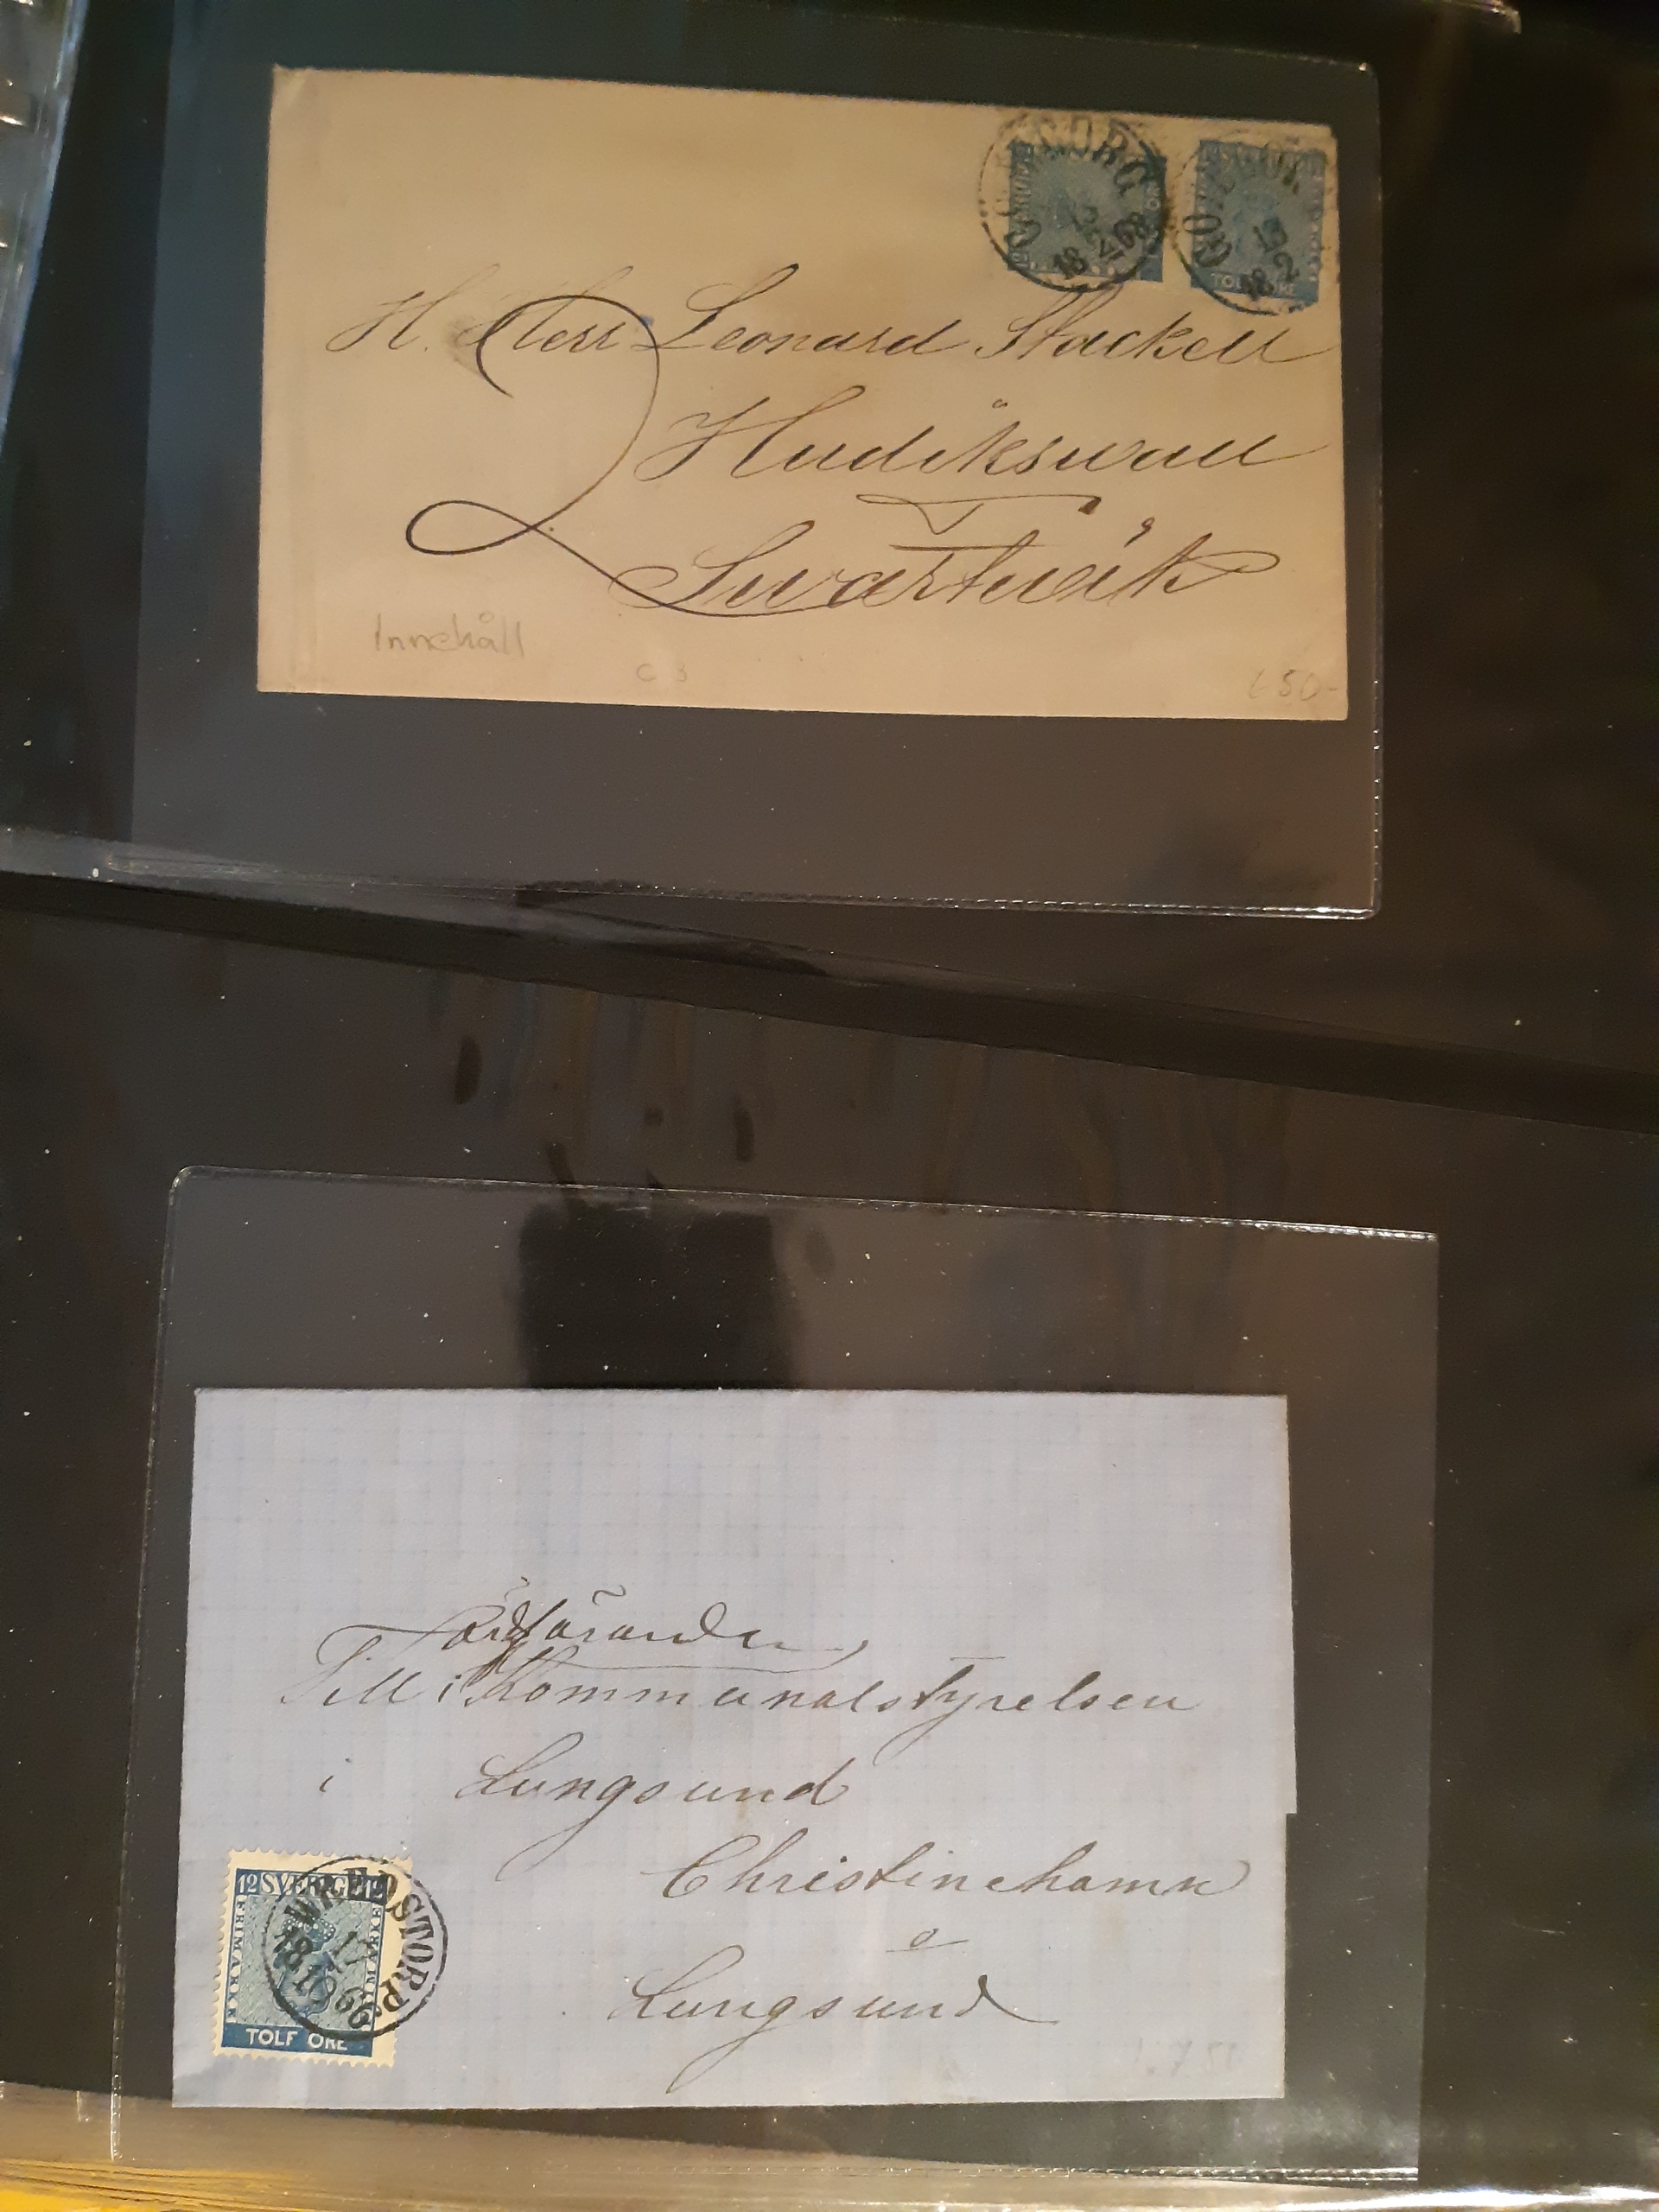 GÖTEBORG
18 2 68
GÖTEBORG
TOLF ÖRE
H. Herr Leonard Stackell
Hudikswall
Swartwik
Innehåll
C 3
650-
Ordföranden
Till i Kommunalstyrelsen
i Lungsund
Christinehamn
o
Lungsund
12 SVERIGE 12
FRIMÄRKE
FRIMÄRKE
TOLF ÖRE
WREDSTORP
17
18 10 66